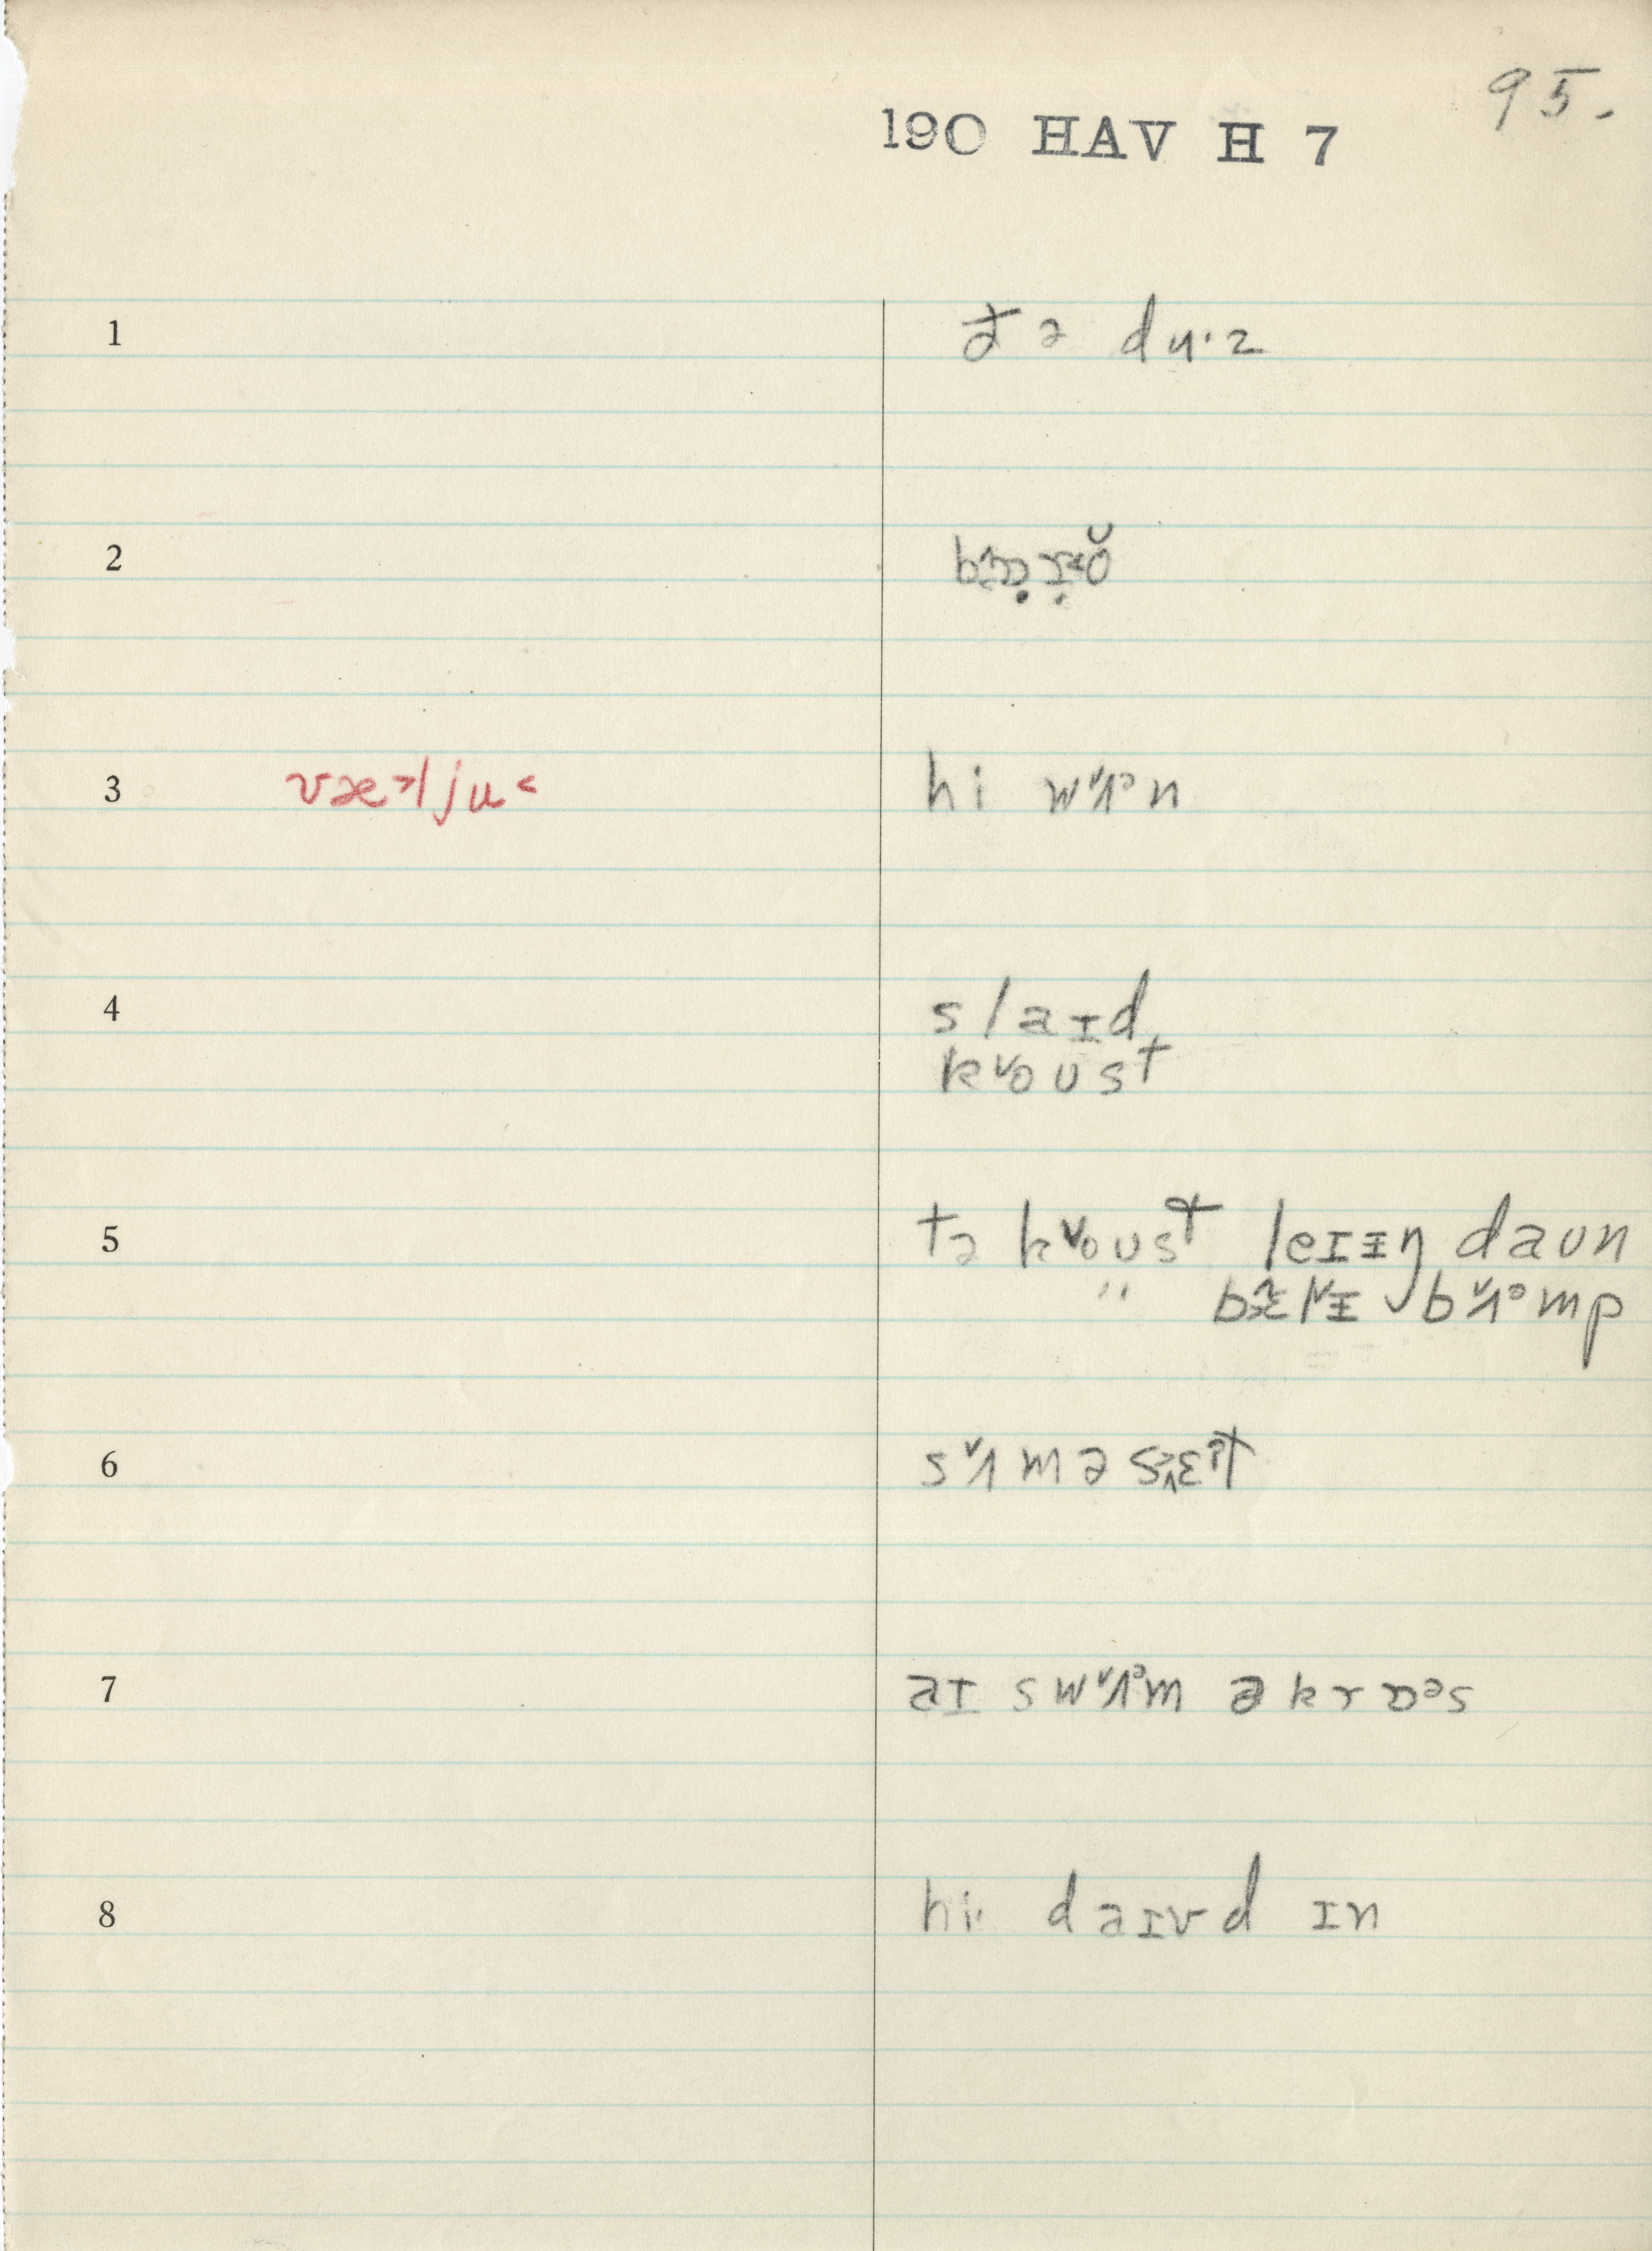 95.
190 HAV H 7
1 ðə du·z
2
3 væ˃l ju˂ hi wʌ˅ᵊn
4 slaɪd
k˅oust
5 tə k˅oust leɪɪŋ daun
" bʌ˅ᵊmp
6 sʌ˅mə
7 aɪ swʌ˅ᵊm əkrɒᵊs
8 hi· daɪvd ɪn